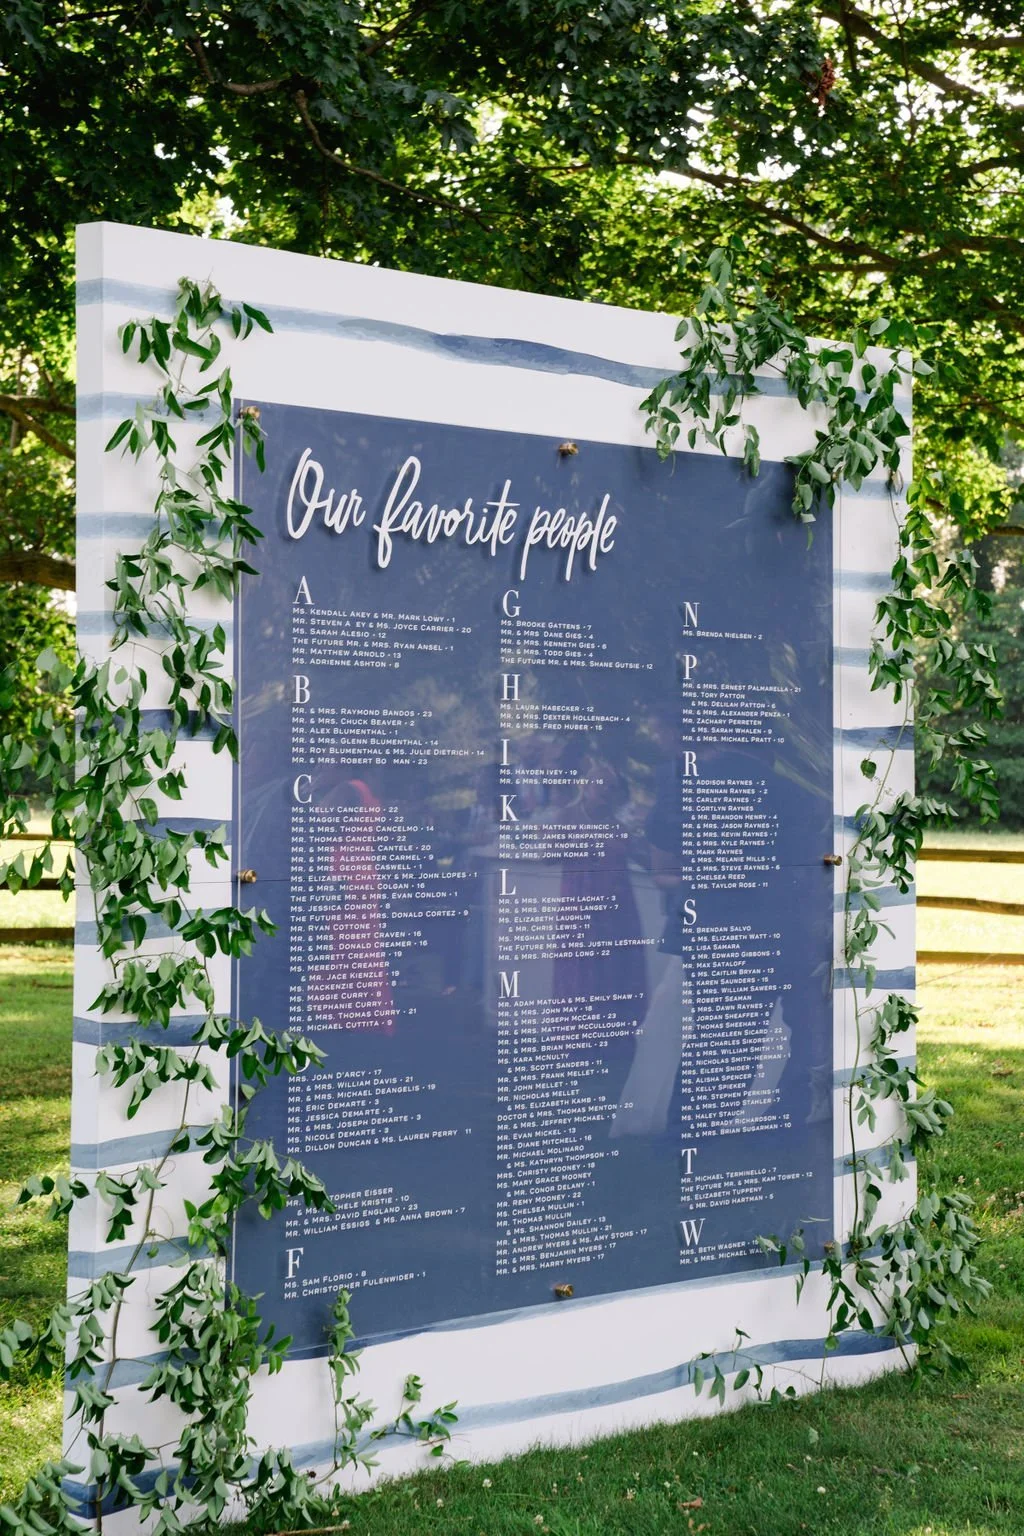 Our favorite people
A
MS. KENDALL AKEY & MR. MARK LOWY • 1
MR. STEVEN A EY & MS. JOYCE CARRIER • 20
MS. SARAH ALESIO • 12
THE FUTURE MR. & MRS. RYAN ANSEL • 1
MR. MATTHEW ARNOLD • 13
MS. ADRIENNE ASHTON • 8
B
MR. & MRS. RAYMOND BANDOS • 23
MR. & MRS. CHUCK BEAVER • 2
MR. ALEX BLUMENTHAL • 1
MR. & MRS. GLENN BLUMENTHAL • 14
MR. ROY BLUMENTHAL & MS. JULIE DIETRICH • 14
MR. & MRS. ROBERT BO MAN • 23
C
MS. KELLY CANCELMO • 22
MS. MAGGIE CANCELMO • 22
MR. & MRS. THOMAS CANCELMO • 14
MR. THOMAS CANCELMO • 22
MR. & MRS. MICHAEL CANTELE • 20
MR. & MRS. ALEXANDER CARMEL • 9
MR. & MRS. GEORGE CASWELL • 1
MS. ELIZABETH CHATZKY & MR. JOHN LOPES • 1
MR. & MRS. MICHAEL COLGAN • 16
THE FUTURE MR. & MRS. EVAN CONLON • 1
MS. JESSICA CONROY • 8
THE FUTURE MR. & MRS. DONALD CORTEZ • 9
MR. RYAN COTTONE • 13
MR. & MRS. ROBERT CRAVEN • 16
MR. & MRS. DONALD CREAMER • 16
MR. GARRETT CREAMER • 19
MS. MEREDITH CREAMER
& MR. JACE KIENZLE • 19
MS. MACKENZIE CURRY • 8
MS. MAGGIE CURRY • 8
MS. STEPHANIE CURRY • 1
MR. & MRS. THOMAS CURRY • 21
MR. MICHAEL CUTTITA • 9
MRS. JOAN D'ARCY • 17
MR. & MRS. WILLIAM DAVIS • 21
MR. & MRS. MICHAEL DEANGELIS • 19
MR. ERIC DEMARTE • 3
MS. JESSICA DEMARTE • 3
MR. & MRS. JOSEPH DEMARTE • 3
MS. NICOLE DEMARTE • 3
MR. DILLON DUNCAN & MS. LAUREN PERRY 11
TOPHER EISSER
HELE KRISTIE • 10
MR. & MRS. DAVID ENGLAND • 23
MR. WILLIAM ESSIGS & MS. ANNA BROWN • 7
F
MS. SAM FLORIO • 8
MR. CHRISTOPHER FULENWIDER • 1
G
MS. BROOKE GATTENS • 7
MR. & MRS. DANE GIES • 4
MR. & MRS. KENNETH GIES • 6
MR. & MRS. TODD GIES • 4
THE FUTURE MR. & MRS. SHANE GUTSIE • 12
H
MS. LAURA HABECKER • 12
MR. & MRS. DEXTER HOLLENBACH • 4
MR. & MRS. FRED HUBER • 15
I
MS. HAYDEN IVEY • 19
MR. & MRS. ROBERT IVEY • 16
K
MR. & MRS. MATTHEW KIRINCIC • 1
MR. & MRS. JAMES KIRKPATRICK • 18
MRS. COLLEEN KNOWLES • 22
MR. & MRS. JOHN KOMAR • 15
L
MR. & MRS. KENNETH LACHAT • 3
MR. & MRS. BENJAMIN LANGEY • 7
MS. ELIZABETH LAUGHLIN
& MR. CHRIS LEWIS • 11
MS. MEGHAN LEAHY • 21
THE FUTURE MR. & MRS. JUSTIN LESTRANGE • 1
MR. & MRS. RICHARD LONG • 22
M
MR. ADAM MATULA & MS. EMILY SHAW • 7
MR. & MRS. JOHN MAY • 18
MR. & MRS. JOSEPH MCCABE • 23
MR. & MRS. MATTHEW MCCULLOUGH • 8
MR. & MRS. LAWRENCE MCCULLOUGH • 21
MR. & MRS. BRIAN MCNEIL • 23
MS. KARA MCNULTY
& MR. SCOTT SANDERS • 11
MR. & MRS. FRANK MELLET • 14
MR. JOHN MELLET • 19
MR. NICHOLAS MELLET
& MS. ELIZABETH KAMB • 19
DOCTOR & MRS. THOMAS MENTON • 20
MR. & MRS. JEFFREY MICHAEL • 5
MR. EVAN MICKEL • 13
MRS. DIANE MITCHELL • 16
MR. MICHAEL MOLINARO
& MS. KATHRYN THOMPSON • 10
MRS. CHRISTY MOONEY • 18
MS. MARY GRACE MOONEY
& MR. CONOR DELANY • 1
MR. REMY MOONEY • 22
MS. CHELSEA MULLIN • 1
MR. THOMAS MULLIN
& MS. SHANNON DAILEY • 13
MR. & MRS. THOMAS MULLIN • 21
MR. ANDREW MYERS & MS. AMY STOHS • 17
MR. & MRS. BENJAMIN MYERS • 17
MR. & MRS. HARRY MYERS • 17
N
MS. BRENDA NIELSEN • 2
P
MR. & MRS. ERNEST PALMARELLA • 21
MRS. TORY PATTON
& MS. DELILAH PATTON • 6
MR. & MRS. ALEXANDER PENZA • 1
MR. ZACHARY PERRETEN
& MS. SARAH WHALEN • 9
MR. & MRS. MICHAEL PRATT • 10
R
MS. ADDISON RAYNES • 2
MR. BRENNAN RAYNES • 2
MS. CARLEY RAYNES • 2
MS. CORTLYN RAYNES
& MR. BRANDON HENRY • 4
MR. & MRS. JASON RAYNES • 1
MR. & MRS. KEVIN RAYNES • 1
MR. & MRS. KYLE RAYNES • 1
MR. MARK RAYNES
& MRS. MELANIE MILLS • 6
MR. & MRS. STEVE RAYNES • 6
MS. CHELSEA REED
& MS. TAYLOR ROSE • 11
S
MR. BRENDAN SALVO
& MS. ELIZABETH WATT • 10
MS. LISA SAMARA
& MR. EDWARD GIBBONS • 5
MR. MAX SATALOFF
& MS. CAITLIN BRYAN • 13
MS. KAREN SAUNDERS • 15
MR. & MRS. WILLIAM SAWERS • 20
MR. ROBERT SEAMAN
& MRS. DAWN RAYNES • 2
MR. JORDAN SHEAFFER • 6
MR. THOMAS SHEEHAN • 12
MS. MICHAELEEN SICARD • 22
FATHER CHARLES SIKORSKY • 14
MR. & MRS. WILLIAM SMITH • 15
MR. NICHOLAS SMITH-HERMAN • 1
MRS. EILEEN SNIDER • 16
MS. ALISHA SPENCER • 12
MS. KELLY SPIEKER
& MR. STEPHEN PERKINS • 11
MR. & MRS. DAVID STAHLER • 7
MS. HALEY STAUCH
& MR. BRADY RICHARDSON • 12
MR. & MRS. BRIAN SUGARMAN • 10
T
MR. MICHAEL TERMINELLO • 7
THE FUTURE MR. & MRS. KAM TOWER • 12
MS. ELIZABETH TUPPENY
& MR. DAVID HARTMAN • 5
W
MRS. BETH WAGNER •
MR. & MRS. MICHAEL